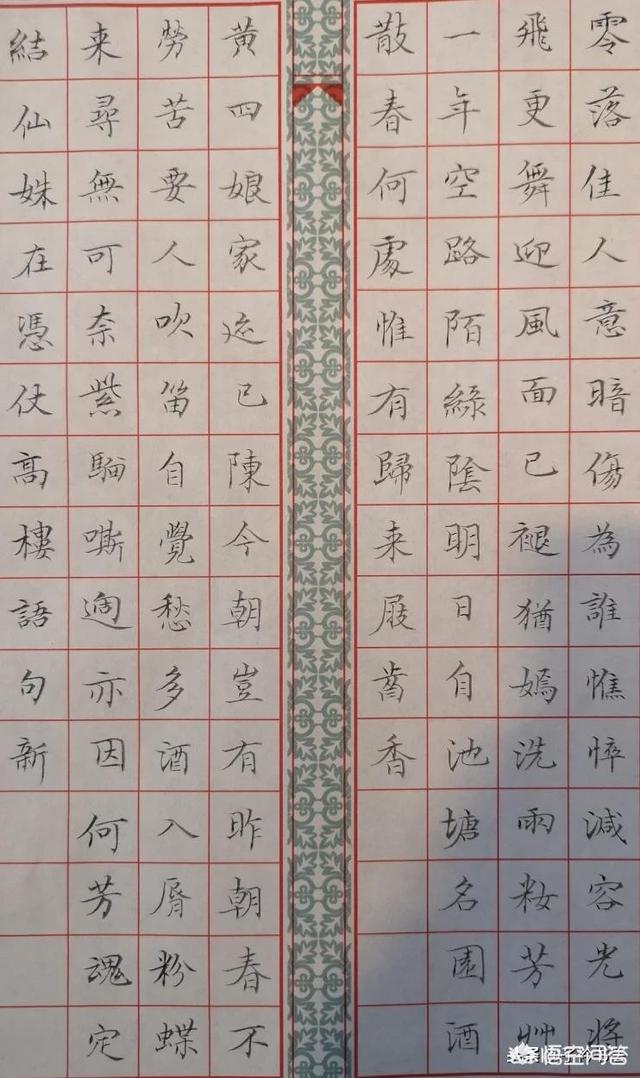 零落佳人意暗傷為誰憔悴減容光將
飛更舞迎風面已褪猶嫣洗雨粧芳艸
一年空路陌綠陰明日自池塘名園酒
散春何處惟有歸来屐齒香
黄四娘家迹已陳今朝豈有昨朝春不
勞苦要人吹笛自覺愁多酒入脣粉蝶
来尋無可奈紫騮嘶過亦因何芳魂定
結仙姝在憑仗高樓語句新
悟空问答